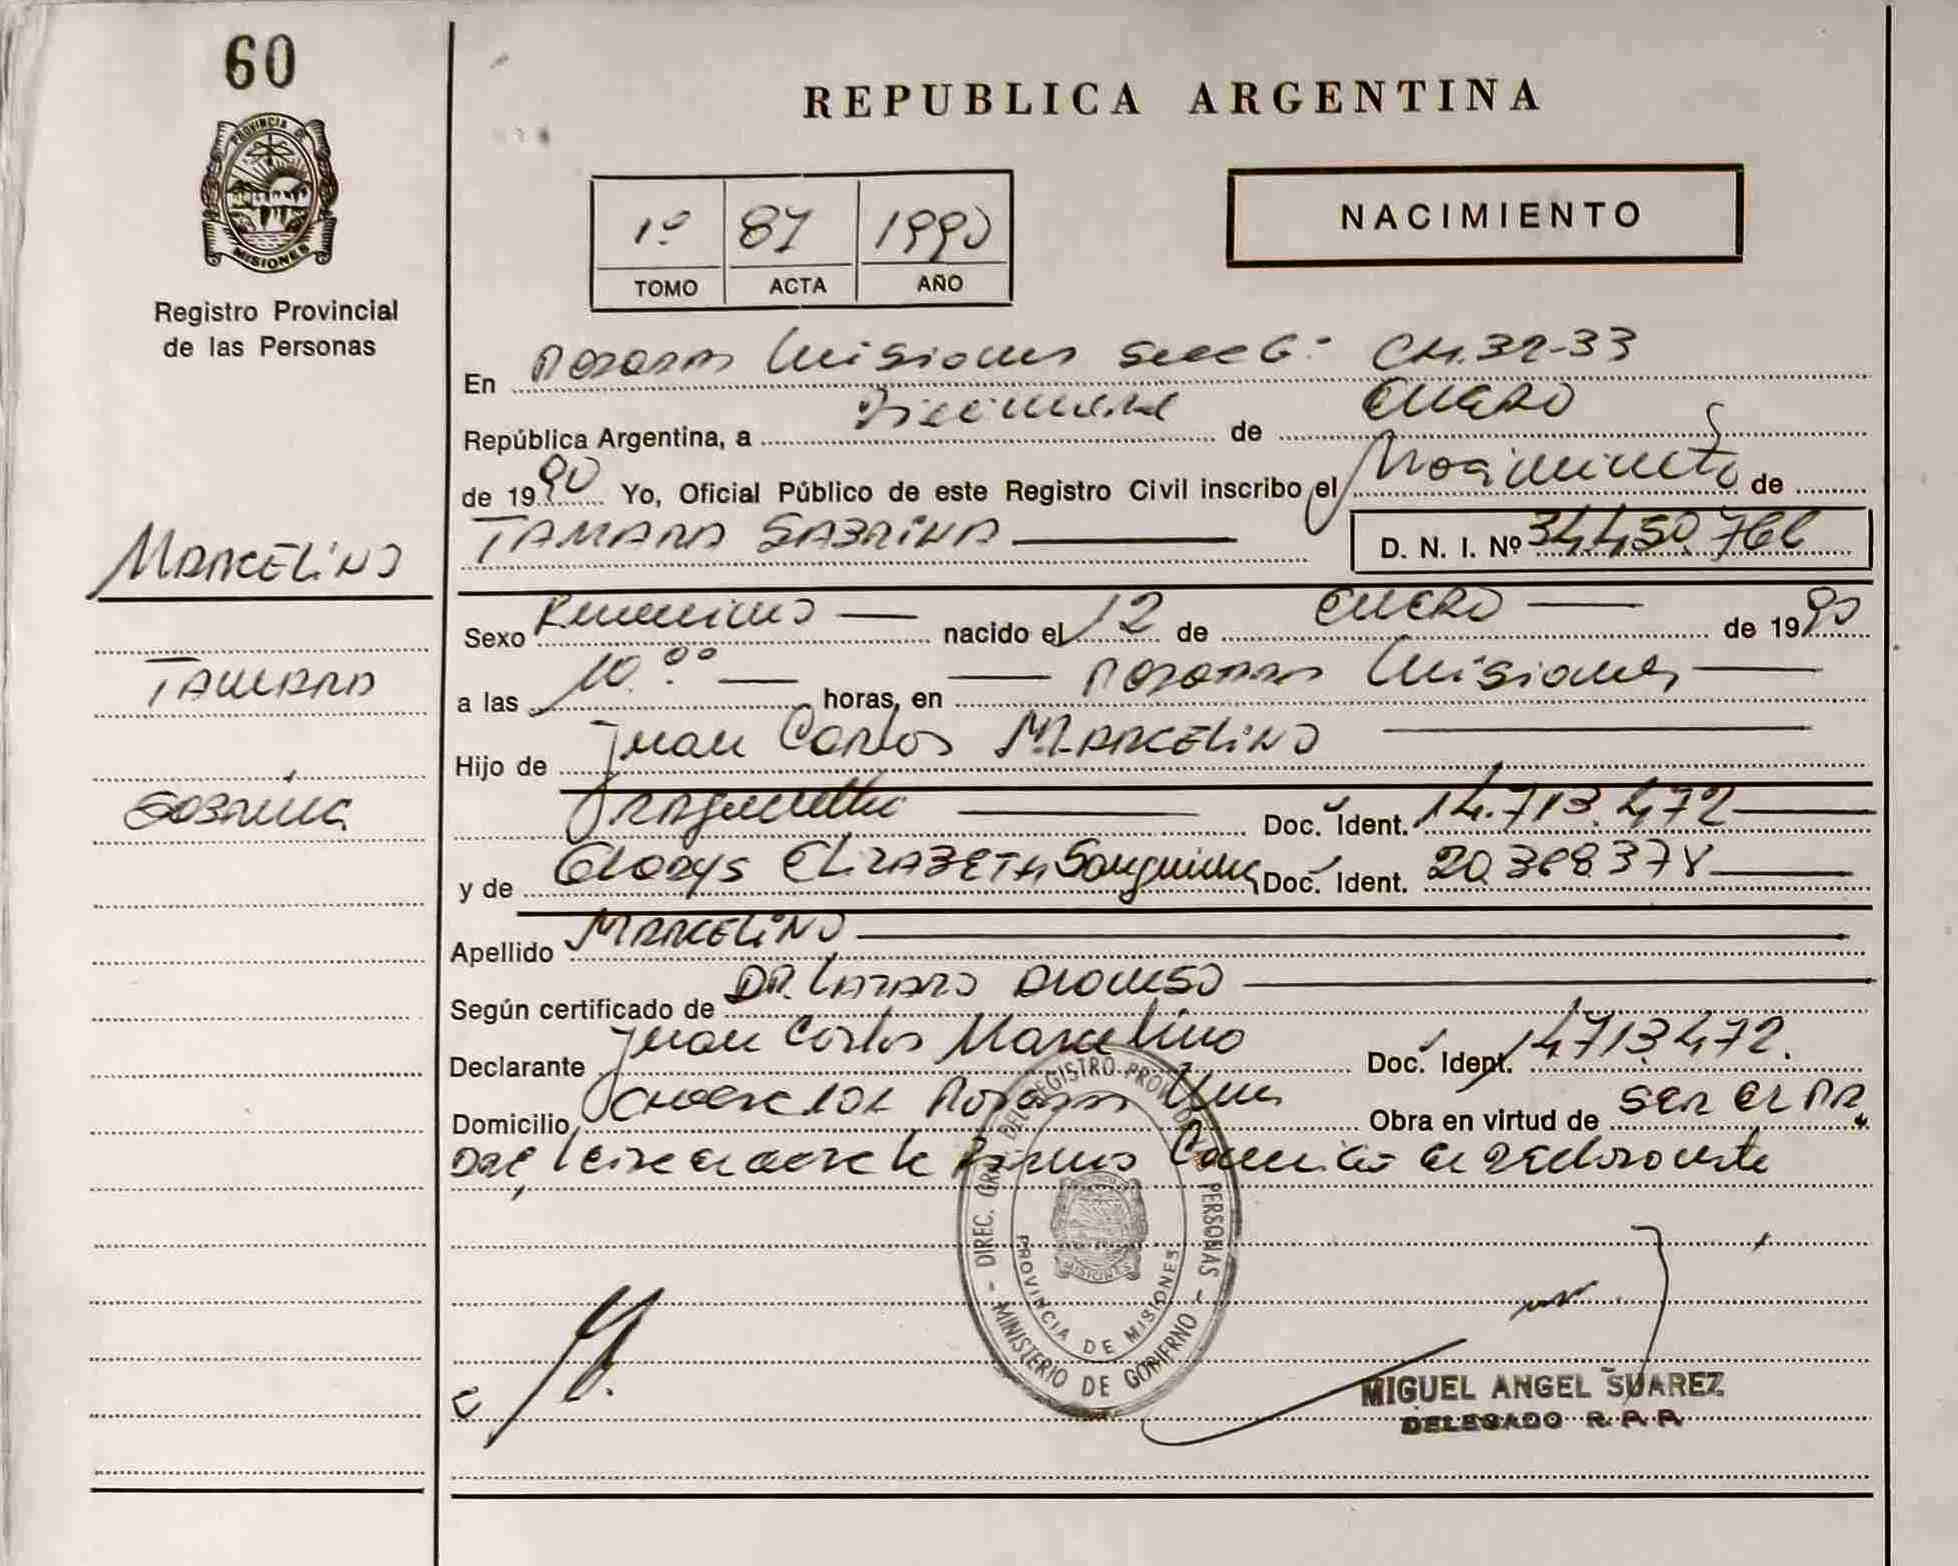 60
PROVINCIA DE
MISIONES
Registro Provincial
de las Personas
REPUBLICA ARGENTINA
1º 87 1990
TOMO ACTA AÑO
NACIMIENTO
En Posadas Misiones Secc 6ª CH. 32-33
República Argentina, a de Enero
de 1990 Yo, Oficial Público de este Registro Civil inscribo el Nacimiento de
TAMARA SABRINA D. N. I. Nº 34.450.766
MARCELINO
TAMARA
SABRINA
Sexo Femenino nacido el 12 de ENERO de 1990
a las 10.00 horas, en Posadas Misiones
Hijo de Juan Carlos MARCELINO
Doc. Ident. 14.713.472
y de Gladys ELIZABETH Doc. Ident. 20.368.378
Apellido MARCELINO
Según certificado de DR. LAZARO
Declarante Juan Carlos Marcelino Doc. Ident. 14713.472.
Domicilio Posadas Mnes Obra en virtud de SER EL PA
DRE,
DIREC. GRAL. DEL REGISTRO PROV. DE PERSONAS
PROVINCIA DE MISIONES
MISIONES
- MINISTERIO DE GOBIERNO -
MIGUEL ANGEL SUAREZ
DELEGADO R. P. P.